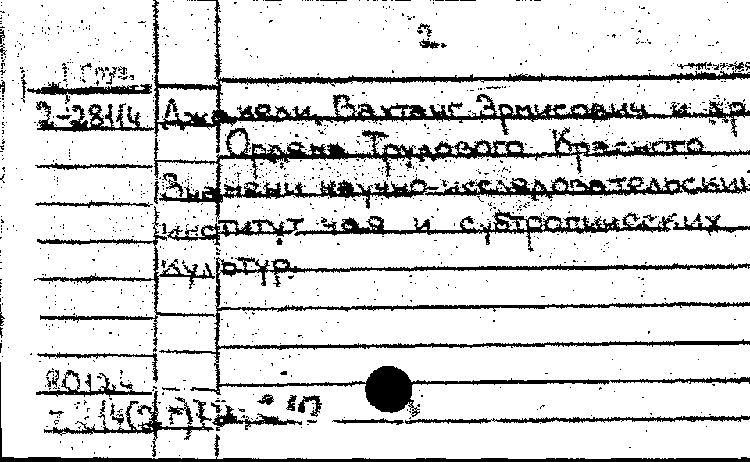 2.
Груз.
2-28114 Джакели, Вахтанг Эрмисович и др
Ордена Трудового Красного
Знамени научно-исследовательский
институт чая и субтропических
культур.